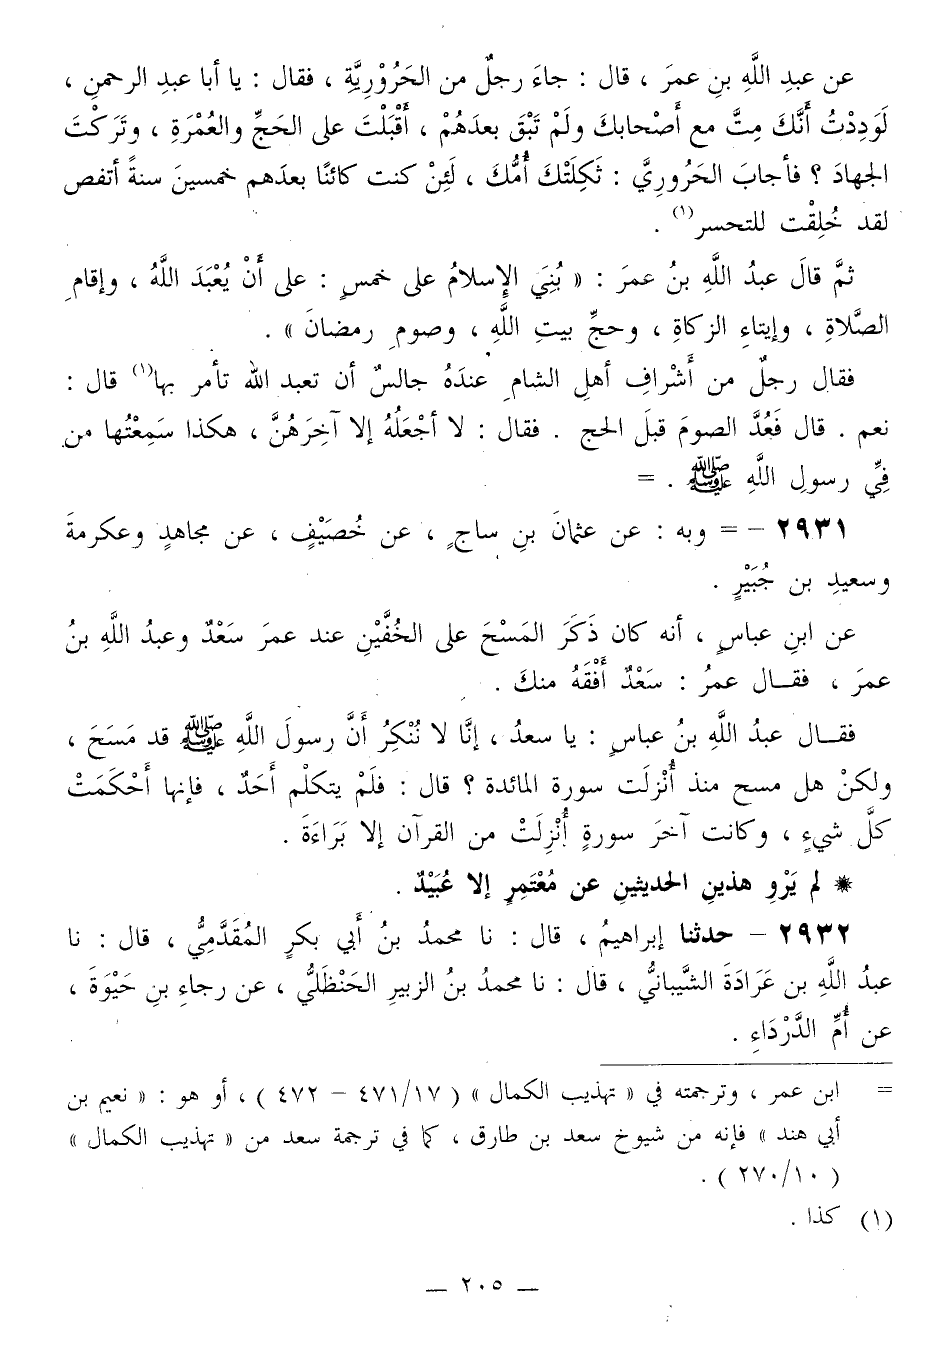 عن عبدِ اللَّهِ بنِ عمرَ ، قال : جاءَ رجلٌ من الحَرُوْرِيَّةِ ، فقال : يا أبا عبد الرحمنِ ،
لَوَدِدْتُ أَنَّكَ مِتَّ مع أَصْحابكَ ولَمْ تَبْقَ بعدَهُمْ ، أَقْبَلْتَ على الحَجِّ والعُمْرَةِ ، وتَرَكْتَ
الجهادَ ؟ فأجابَ الحَرُورِيَّ : ثَكِلَتْكَ أُمُّكَ ، لَئِنْ كنت كائنًا بعدَهم خمسينَ سنةً أتفص
لقد خُلِقْت للتحسر(١) .
ثمَّ قالَ عبدُ اللَّهِ بنُ عمرَ : « بُنِيَ الإسلامُ على خمسٍ : على أَنْ يُعْبَدَ اللَّهُ ، وإقامِ
الصَّلاةِ ، وإيتاءِ الزكاةِ ، وحجِّ بيتِ اللَّهِ ، وصومِ رمضانَ » .
فقال رجلٌ من أَشْرافِ أهلِ الشامِ عندَهُ جالسٌ أن تعبد الله تأمر بها(١) قال :
نعم . قال فَعُدَّ الصومَ قبلَ الحج . فقال : لا أجْعَلُهُ إلا آخِرَهُنَّ ، هكذا سَمِعْتُها من
فِيِّ رسولِ اللَّهِ ﷺ . =
٢٩٣١ – = وبه : عن عثمانَ بنِ ساجٍ ، عن خُصَيْفٍ ، عن مجاهدٍ وعكرمةَ
وسعيدِ بن جُبَيْرٍ .
عن ابنِ عباسٍ ، أنه كان ذَكَرَ المَسْحَ على الخُفَّيْنِ عند عمرَ سَعْدٌ وعبدُ اللَّهِ بنُ
عمرَ ، فقـال عمرُ : سَعْدٌ أَفْقَهُ منكَ .
فقـال عبدُ اللَّهِ بنُ عباسٍ : يا سعدُ ، إنَّا لا نُنْكِرُ أَنَّ رسولَ اللَّهِ ﷺ قد مَسَحَ ،
ولكنْ هل مسح منذ أُنْزِلَت سورة المائدة ؟ قال : فلَمْ يتكلْم أَحَدٌ ، فإنها أَحْكَمَتْ
كلَّ شيءٍ ، وكانت آخرَ سورةٍ أُنْزِلَتْ من القرآن إلا بَرَاءَةَ .
✷ لم يَرْوِ هذينِ الحديثينِ عن مُعْتَمِرٍ إلا عُبَيْدٌ .
٢٩٣٢ – حدثنا إبراهيمُ ، قال : نا محمدُ بنُ أبي بكرٍ المُقَدَّمِيُّ ، قال : نا
عبدُ اللَّهِ بن عَرَادَةَ الشَّيبانيُّ ، قال : نا محمدُ بنُ الزبيرِ الحَنْظَلَيُّ ، عن رجاءِ بنِ حَيْوَةَ ،
عن أُمِّ الدَّرْدَاءِ .
= ابن عمر ، وترجمته في « تهذيب الكمال » ( ١٧/ ٤٧١ – ٤٧٢ ) ، أو هو : « نعيم بن
أبي هند » فإنه من شيوخ سعد بن طارق ، كما في ترجمة سعد من « تهذيب الكمال »
( ١٠/ ٢٧٠ ) .
(١) كذا .
— ٢٠٥ —